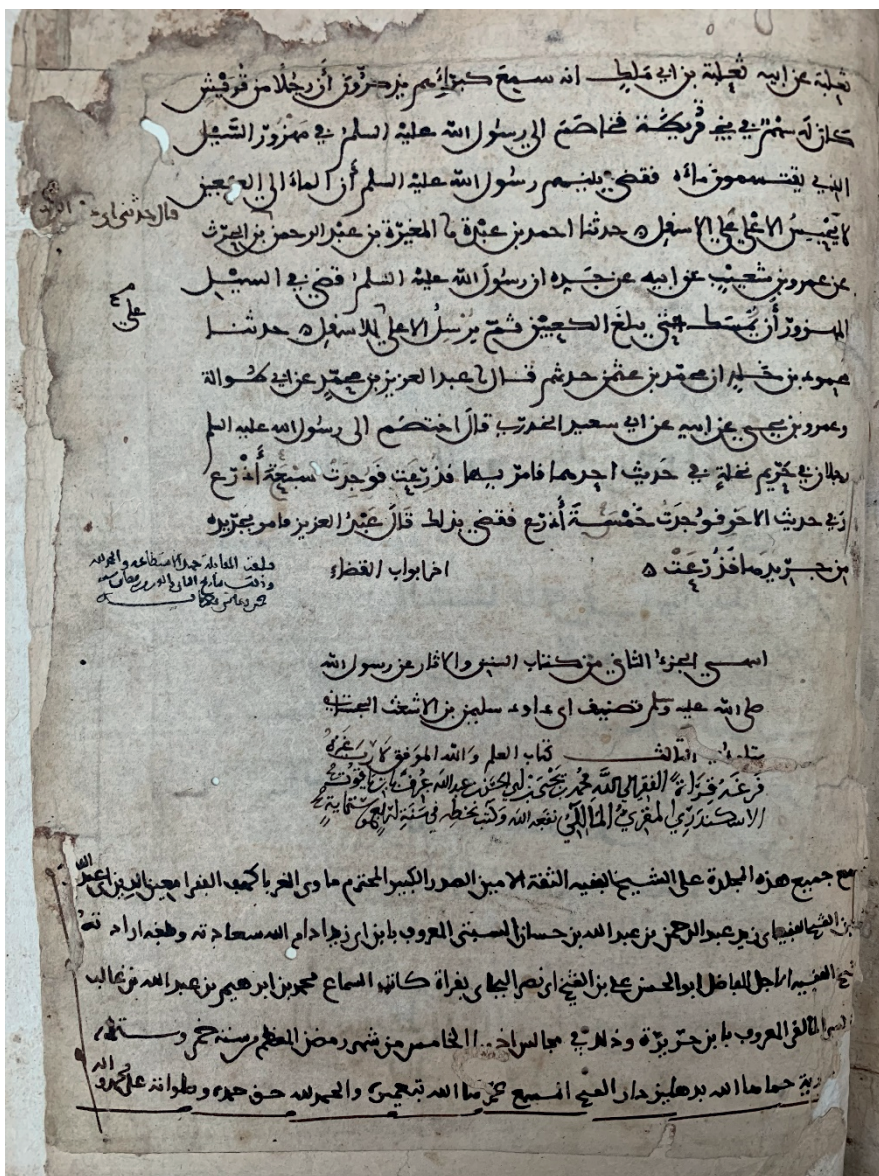 ثعلبة عن ابيه ثعلبة بن ابي ملط انه سمع كبراءهم يذكرون أن رجلا من قريش
كان له سهم في بني قريظة فخاصم الى رسول الله عليه السلم في مهزور السيل
الذي يقتسمون ماءه فقضى بينهم رسول الله عليه السلم أن الماء الى الكعبين
لا يحبس الاعلى على الاسفل ه حدثنا احمد بن عبدة نا المغيرة بن عبد الرحمن بن الحرث
قال حدثني ابي
عن عمرو بن شعيب عن ابيه عن جده ان رسول الله عليه السلم قضى في السيل
المهزور أن يمسك حتى يبلغ الكعبين ثم يرسل الاعلى على الاسفل ه حدثنا
محمود بن خالد ان محمد بن عثمن حدثهم قال نا عبد العزيز بن محمد عن ابي طوالة
وعمرو بن يحيى عن ابيه عن ابي سعيد الخدري قال اختصم الى رسول الله عليه السلم
رجلان في حريم نخلة في حديث احدهما فامر بها فذرعت فوجدت سبعة أذرع
وفي حديث الاخر فوجدت خمسة أذرع فقضى بذلك قال عبد العزيز فامر بجريدة
من جريدها فذرعت ه اخر ابواب القضاء
بلغت المقابلة جهد الاستطاعة والحمد لله
الجزء الثاني من كتاب السنن والاثار عن رسول الله
صلى الله عليه وسلم تصنيف ابي داود سليمن بن الاشعث السجستاني
الثالث كتاب العلم والله الموفق لا رب غيره
فرغه قراءة الفقير الى الله محمد بن يحيى بن ابي الحسن بن عبد الله عرف بابن ياقوت
الاسكندري المقري المالكي نفعه الله وكتب بخطه في سنة
سمع جميع هذه المجلدة على الشيخ الفقيه الثقة الامين الصدر الكبير المحترم ماوى الغربا كهف الفقرا معين الدين ابي عبد الله
بن الشيخ الفقيه ابي زيد عبد الرحمن بن عبد الله بن حسان السبتي المعروف بابن ادام الله سعادته وبلغه ارادته
الشيخ الفقيه الاجل الفاضل ابو الحسن علي بن الشيخ ابي نصر البجاي بقراة كاتب السماع محمد بن ابرهيم بن عبد الله بن غالب
المالقي المعروف بابن حريرة وذلك في مجالس الخامس من شهر رمضن المعظم من سنة خمس وستمائة
حماها الله بدهليز دار الشيخ المسمع والحمد لله حق حمده وصلواته على محمد واله